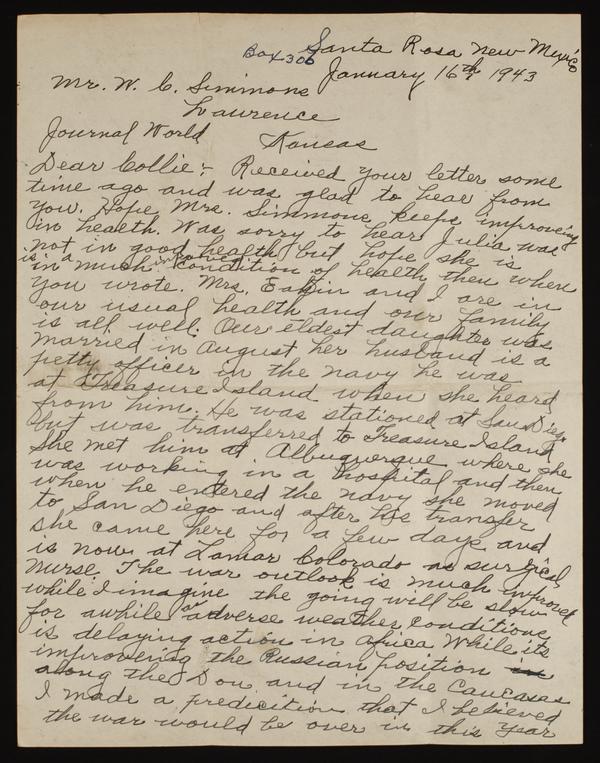 Santa Rosa New Mexico
Box 306
January 16th 1943
Mr. W. C. Simmons
Lawrence
Journal World Kansas
Dear Collie:- Received your letter some
time ago and was glad to hear from
you. Hope Mrs. Simmons keeps improveing
in health. Was sorry to hear Julia was
not in good health but hope she is
is in a much improved condition of health then when
you wrote. Mrs. Eakin and I are in
our usual health and our family
is all well. Our eldest daughter was
married in August her husband is a
petty officer in the navy he was
at Treasure Island when she heard
from him. He was stationed at San Diego
but was transferred to Treasure Island
She met him at Albuquerque where she
was working in a hospital and then
when he entered the navy she moved
to San Diego and after his transfer
she came here for a few days and
is now at Lamar Colorado as surgical
nurse. The war outlook is much improved
while I imagine the going will be slow
for awhile as adverse weather conditions
is delaying action in Africa While its
improveing the Russian position in
along the Don and in the Caucasas
I made a predicition that I believed
the war would be over in this year